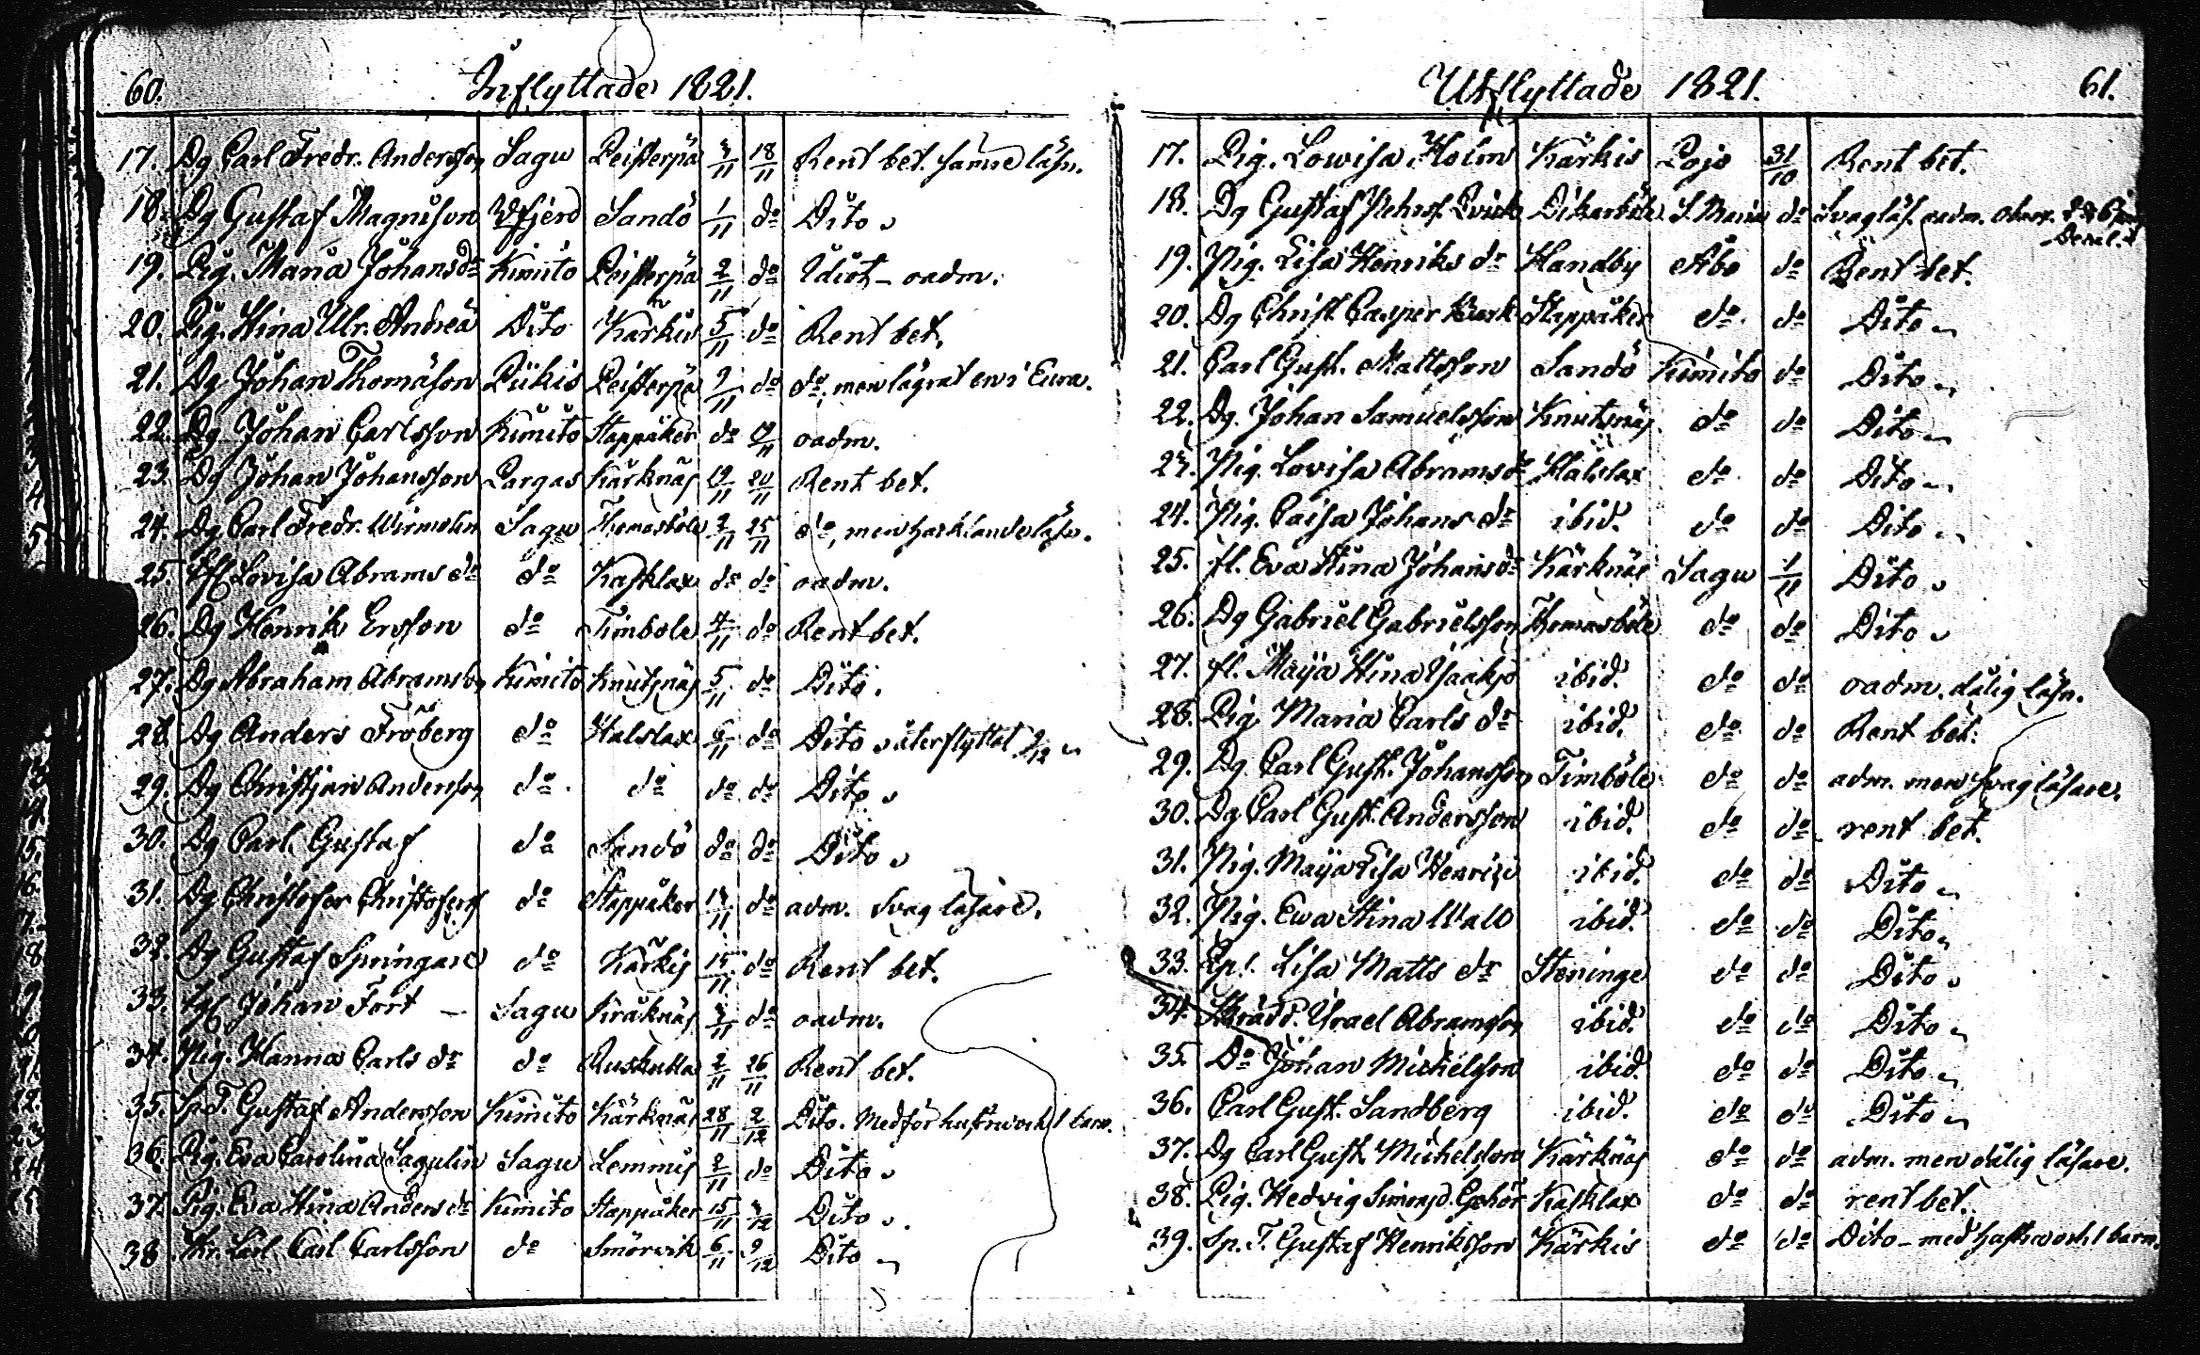 60.
Inflyttade 1821.
17. Dg Carl Fredr. Andersson Sagu Peisterpä 3/11 18/11 Rent bet. sämre läsn.
18. Dg Gustaf Magnuson Sandö 1/11 do Dito
19. Pig. Maria Johansdr Kimito Peisterpä 2/11 do Idiot - oadm.
20. Pig. Stina Ulr. Andreä Dito Kärkis 5/11 do Rent bet.
21. Dg Johan Thomäson Piikis Peisterpä 9/11 do do, men lägrat en i Eura.
22. Dg Johan Carlsson Kimito Stappåker do 19/11 oadm.
23. Dg Johan Johansson Pargas Kärknäs 19/11 20/11 Rent bet.
24. Dg Carl Fredr. Wirmelin Sagu Thomasböle 2/11 25/11 do, men harklande läsn.
25. Lovisa Abrams dr do Kasklax do do oadm.
26. Dg Henrik Ersson do Timböle 4/11 do Rent bet.
27. Dg Abraham Abramson Kimito Knutsnäs 5/11 do Dito.
28. Dg Anders Fröberg do Halslax 6/11 do Dito återflyttat
29. Dg Christjan Andersson do do do do Dito
30. Dg Carl Gustaf do Sandö do do Dito
31. Dg Christofer Christofers do Stappåker 13/11 do adm. svag läsare.
32. Dg Gustaf Springare do Kärkis 15/11 do Rent bet.
33. Johan Fort - Sagu Kråknäs 3/11 do oadm.
34. Pig. Hanna Carls dr do Ruskulla 2/11 26/11 Rent bet.
35. Sp.T. Gustaf Andersson Kimito Kärknäs 28/11 2/12 Dito. Medför hustru och 1 barn.
36. Pig. Eva Carolina Sagulin Sagu Lemmis 2/11 do Dito
37. Pig. Eva Stina Anders dr Kimito Stappåker 15/11 3/12 Dito
38. Skr. Lärl. Carl Carlsson do Smörvik 6/11 9/12 Dito
Utflyttade 1821.
61.
17. Pig. Lowisa Holm Kärkis Pojo 31/10 Rent bet.
18. Dg Gustaf Pehrs. Qvick Dikarböle S. Marie do Svag läs. oadm.
19. Pig. Lisa Henriks dr Handby Åbo do Rent bet.
20. Dg Christ. Casper Stappåker do. do Dito
21. Carl Gust. Mattsson Sandö Kimito do Dito
22. Dg. Johan Samuelsson Knutsnäs do do Dito
23. Pig. Lovisa Abramsdr Halslax do do Dito
24. Pig. Caisa Johans dr ibid. do do Dito
25. fl. Eva Stina Johansdr Kärknäs Sagu 1/11 Dito
26. Dg Gabriel Gabrielsson Thomasböle do do Dito
27. fl. Maija Stina Isaaks ibid. do do oadm. dålig läsn.
28. Pig Maria Carls dr ibid. do do Rent bet.
29. Dg Carl Gust. Johansson Timböle do do adm. men svag läsare.
30. Dg Carl Gust. Andersson ibid. do do rent bet.
31. Pig. Maija Lisa Henrici ibid. do do Dito
32. Pig. Ewa Stina Wald ibid. do do Dito
33. Lisa Matts dr Steninge do do Dito
34. Skrädd. Israel Abramsson ibid. do do Dito
35. Do Johan Michelsson ibid. do do Dito
36. Carl Gust. Sandberg ibid. do do Dito
37. Dg Carl Gust. Michelsson Kärknäs do do adm. men dålig läsare.
38. Pig. Hedvig Simonsd. Gehör Kasklax do do rent bet.
39. Sp. T. Gustaf Henriksson Kärkis do do Dito - med hustru och 1 barn.